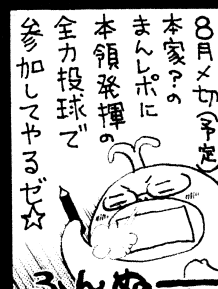 8月〆切(予定)
本家?の
まんレポに
本領発揮の
全力投球で
参加してやるゼ☆
ふんぬー